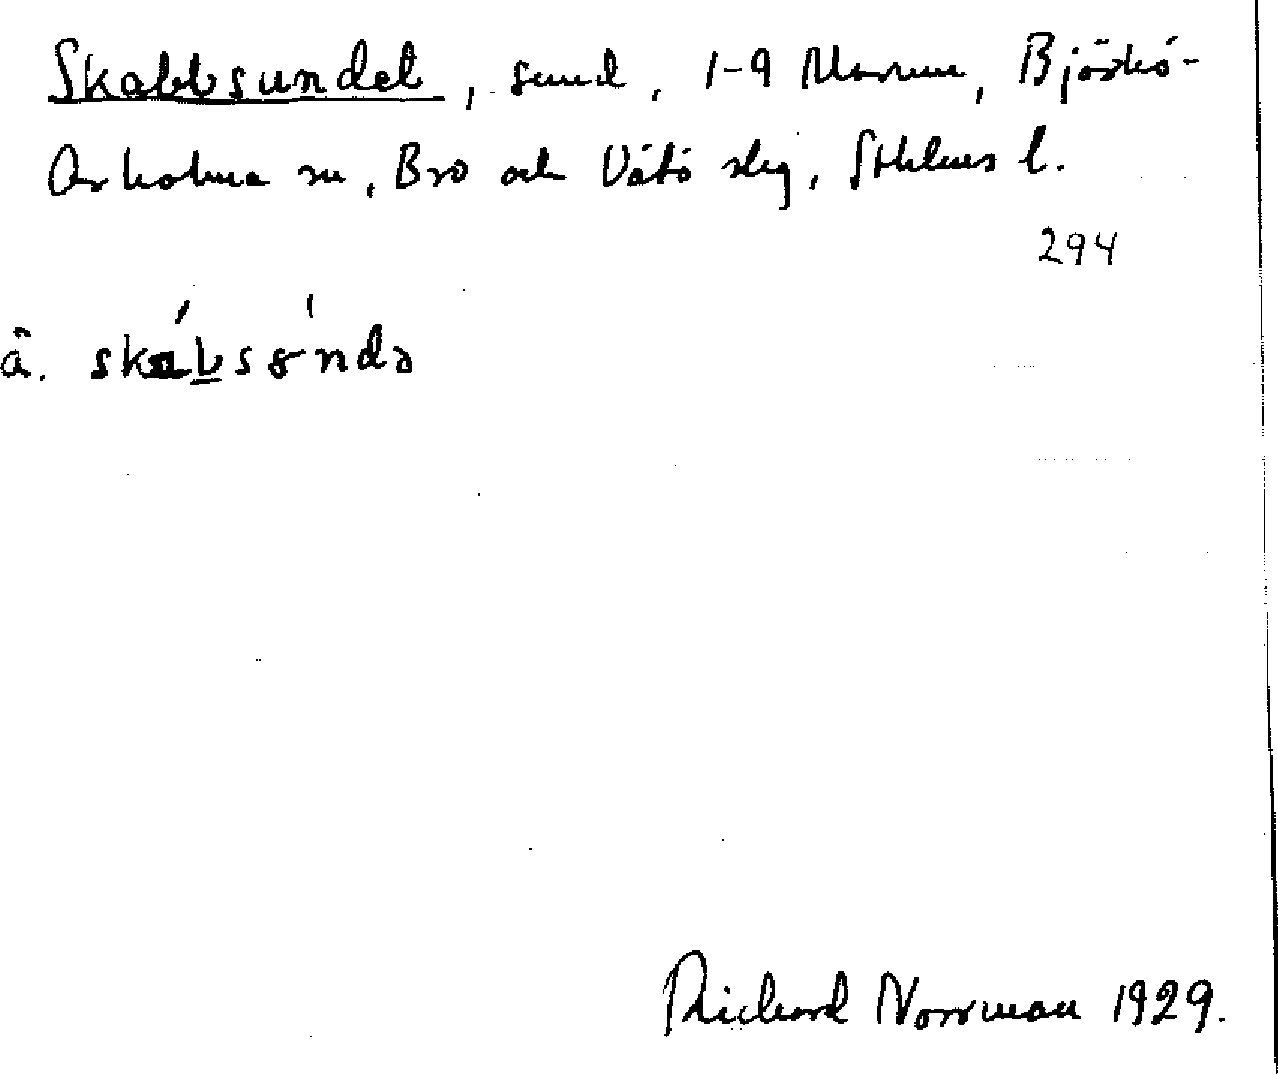 Skabbsundet, sund, 1-9 Marum, Björkö-
Arholma sn, Bro och Vätö slg, Sthlms l.
294
ā. skábsøndə
Richard Norrman 1929.